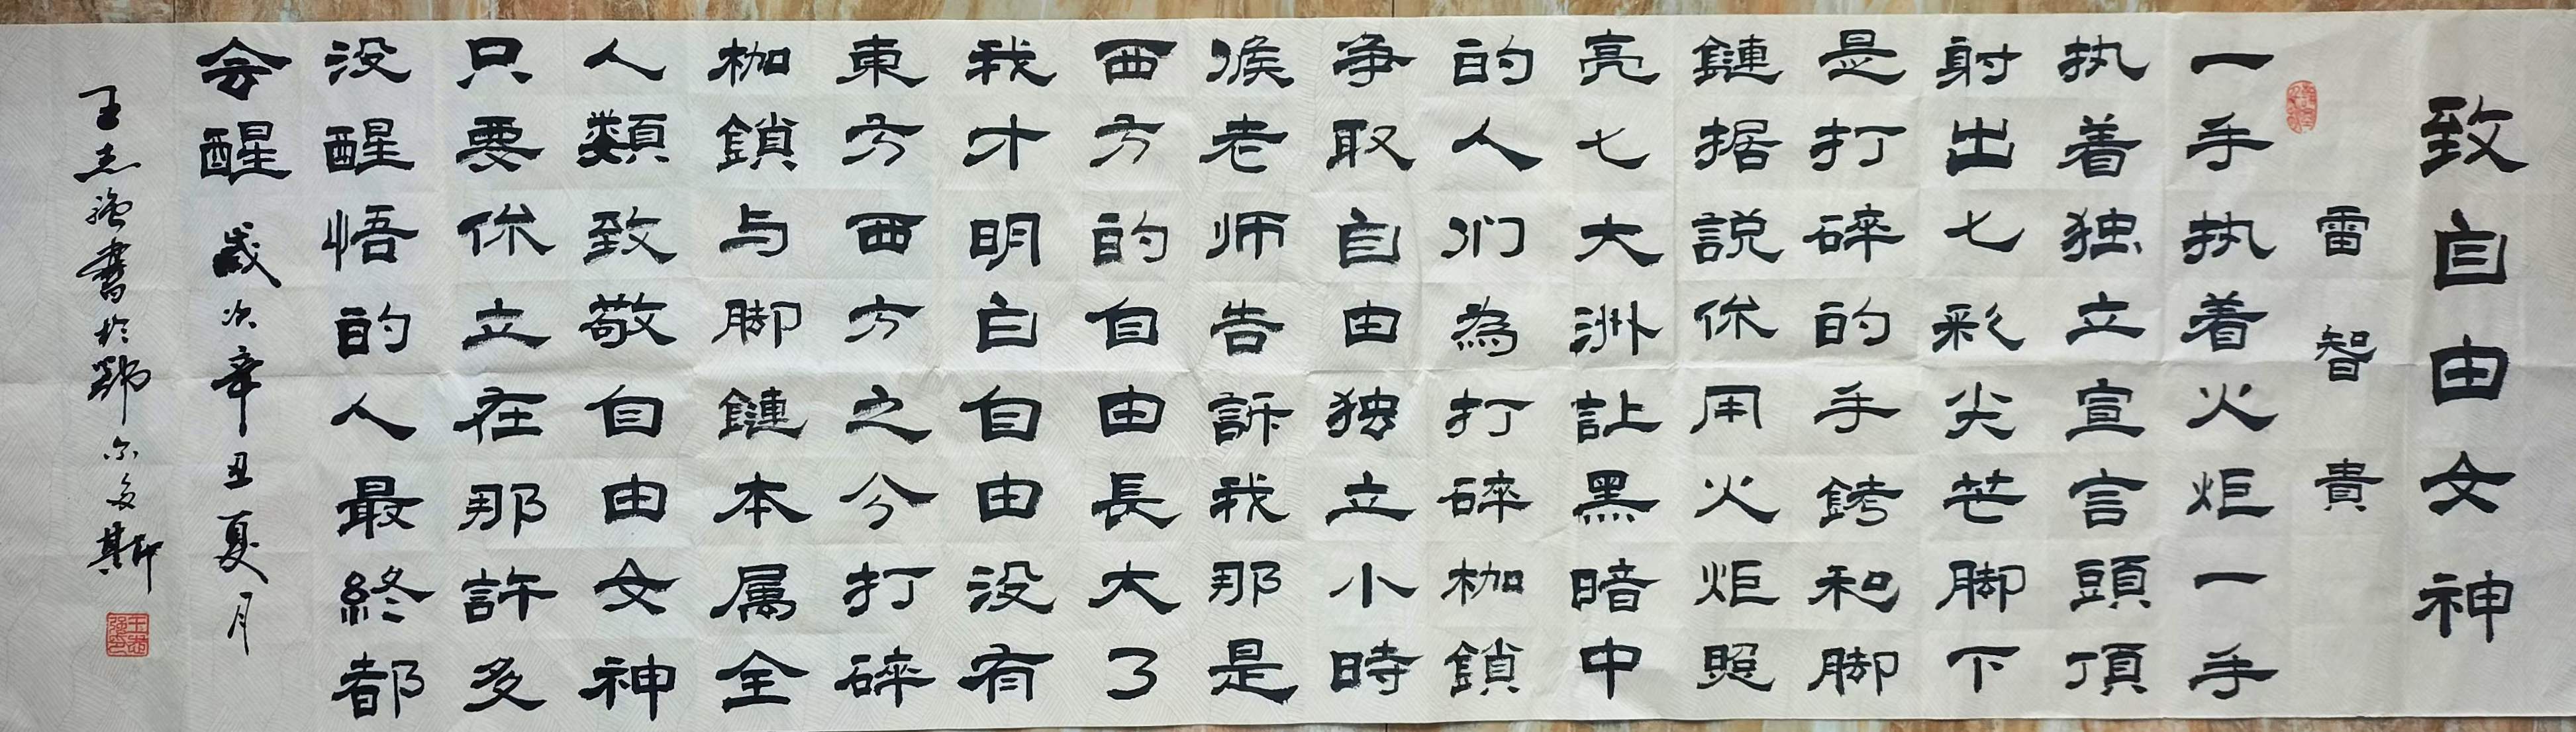 致自由女神
雷智貴
一手执着火炬一手
执着独立宣言頭頂
射出七彩尖芒脚下
是打碎的手銬和脚
鏈据説你用火炬照
亮七大洲让黑暗中
的人们為打碎枷鎖
争取自由独立小時
候老师告訴我那是
西方的自由長大了
我才明白自由没有
東方西方之分打碎
枷鎖与脚鏈本属全
人類致敬自由女神
只要你立在那許多
没醒悟的人最終都
会醒 歲次辛丑夏月
王志强書於鄂尔多斯